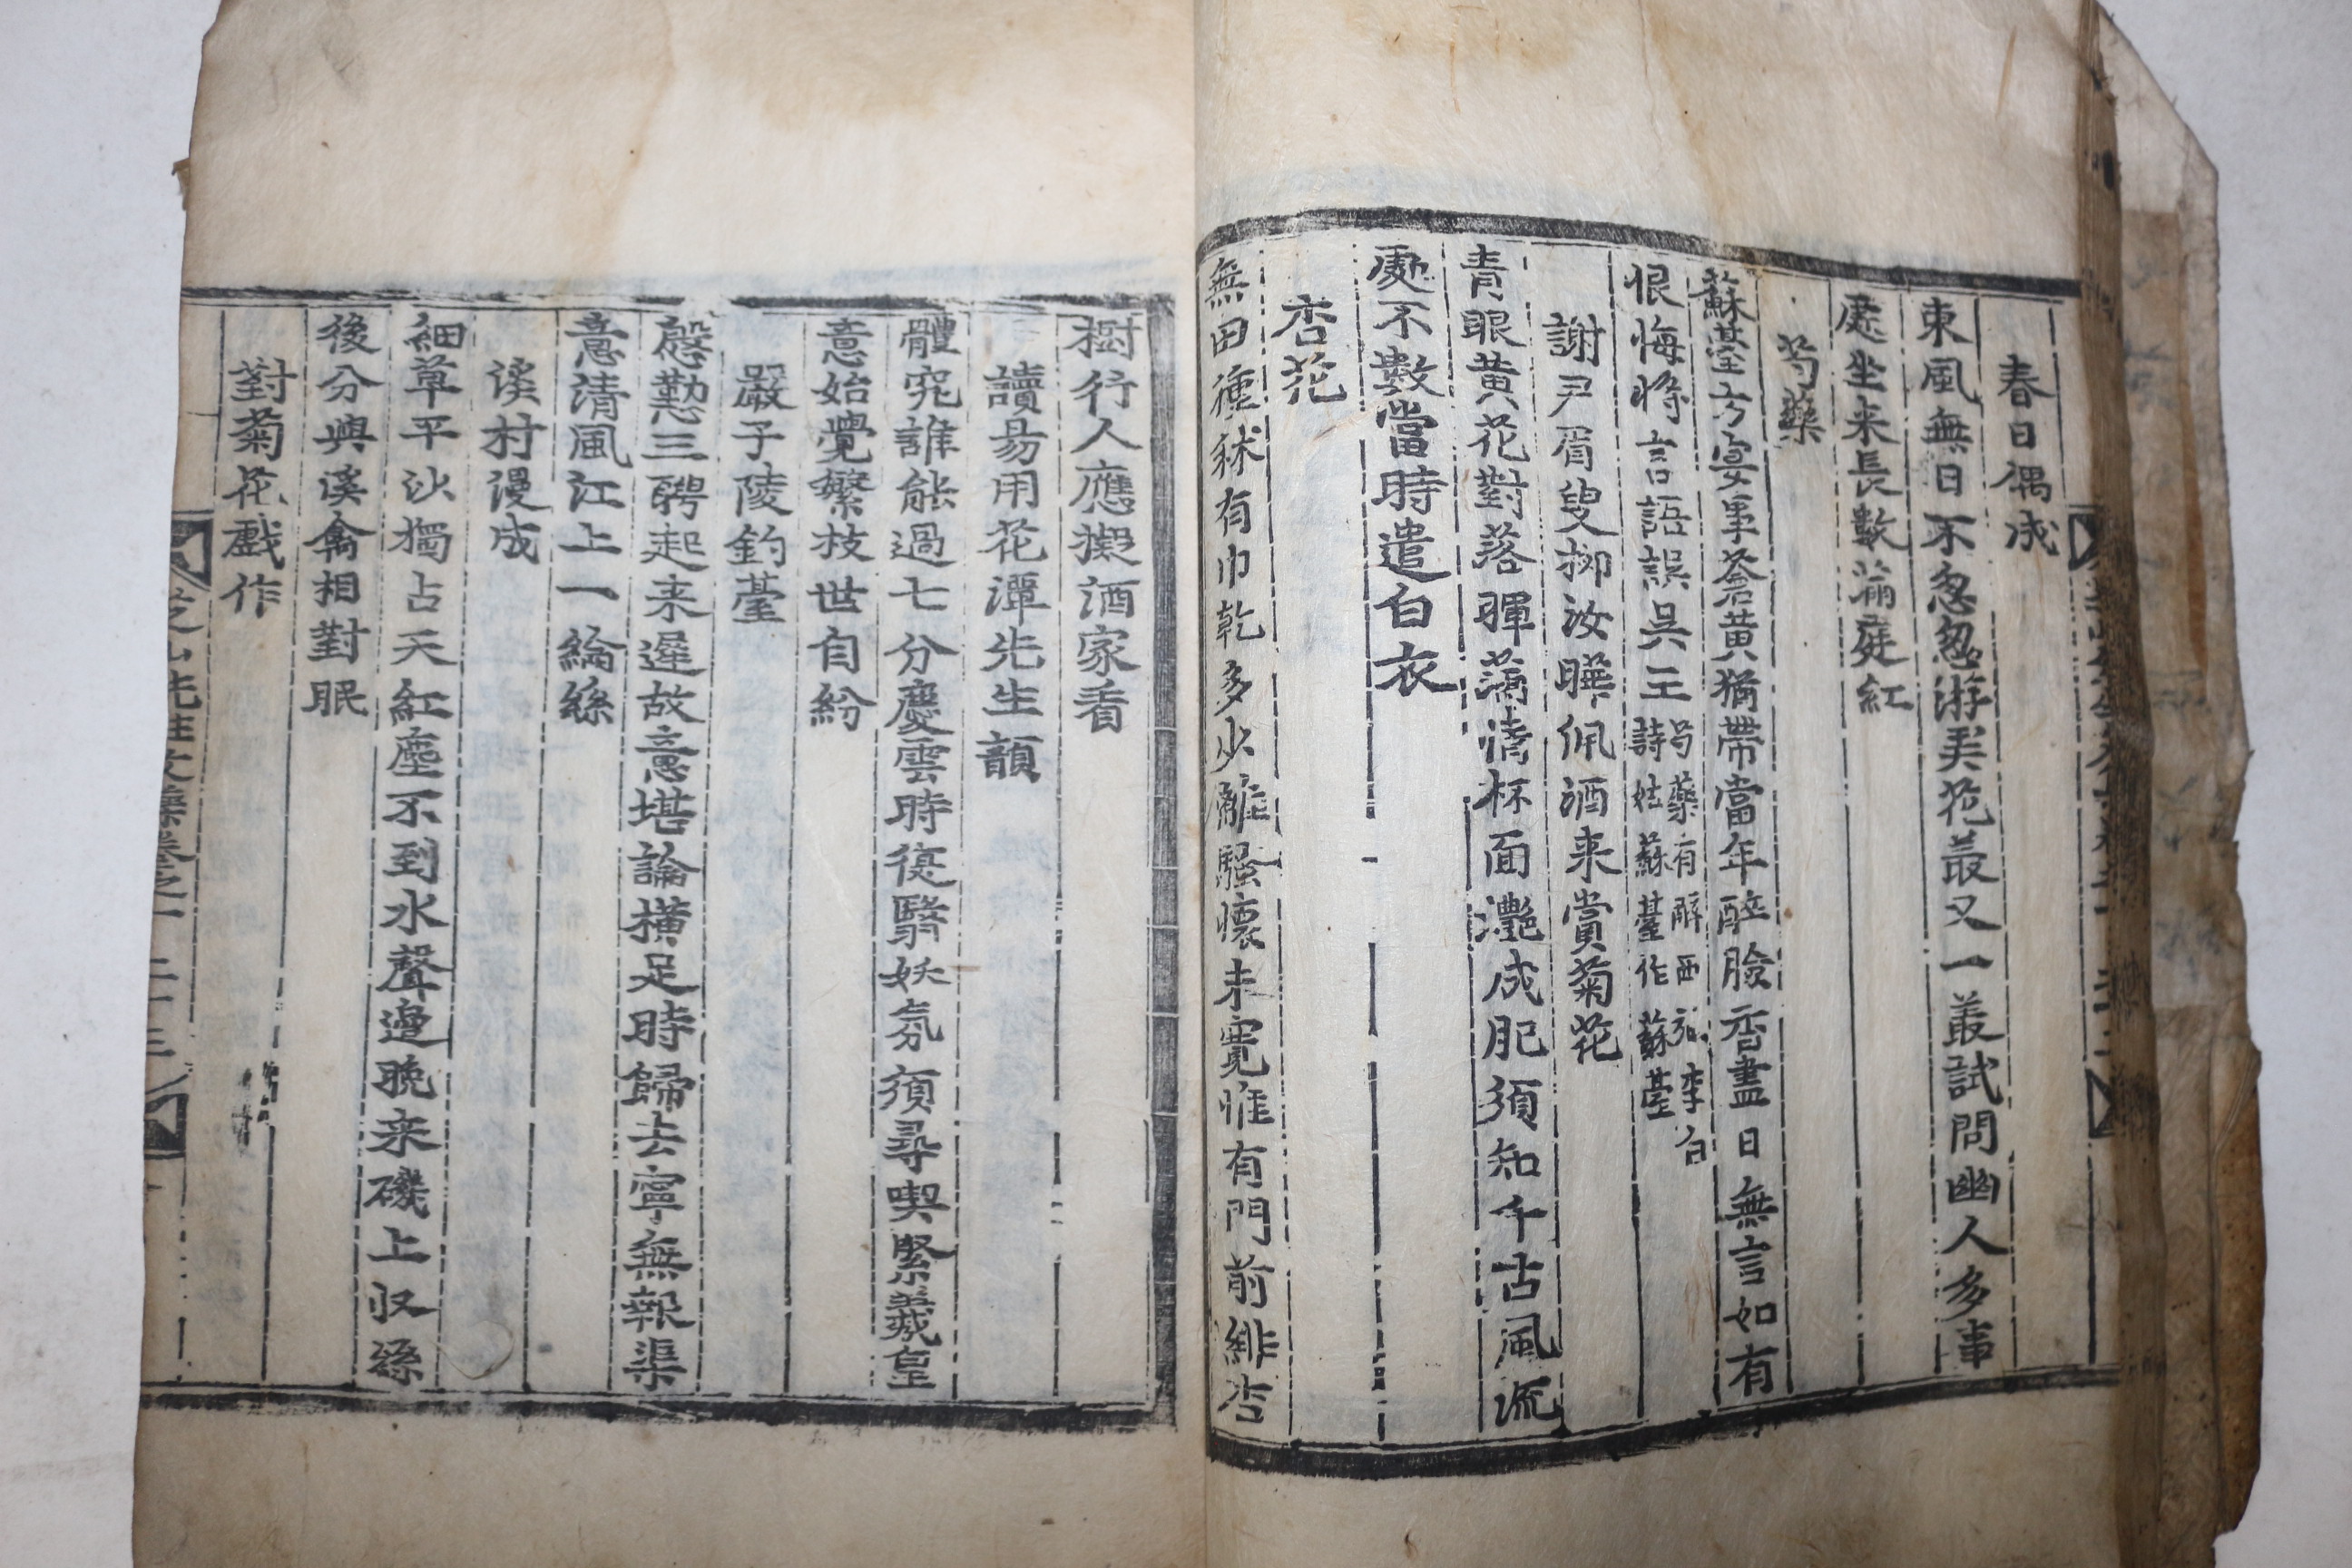 春日偶成
東風無日不忽忽游美花叢又一叢試問幽人多事
處坐来長數滿庭紅
芍藥
蘇臺方宴事蒼黃猶帶當年醉臉香盡日無言如有
恨悔將言語誤吳王
芍藥有醉西施李白
詩姑蘇臺作蘇臺
謝尹眉叟抑汝曄佩酒来賞菊花
青眼黃花對落暉滿情杯面灔成肥須知千古風流
處不數當時遣白衣
杏花
無田種秫有巾乾多少離騷懷未寬惟有門前緋杏
樹行人應擬酒家看
讀易用花潭先生韻
體究誰能過七分慶雲時復翳妖氛須尋喫緊羲皇
意始覺繁枝世自紛
嚴子陵釣臺
慇懃三聘起来遲故意堪論橫足時歸去寧無報渠
意清風江上一綸絲
溪村漫成
細草平沙獨占天紅塵不到水聲邊晚来磯上收絲
後分與溪禽相對眠
對菊花戲作
芝山先生文藁卷之一 二十三